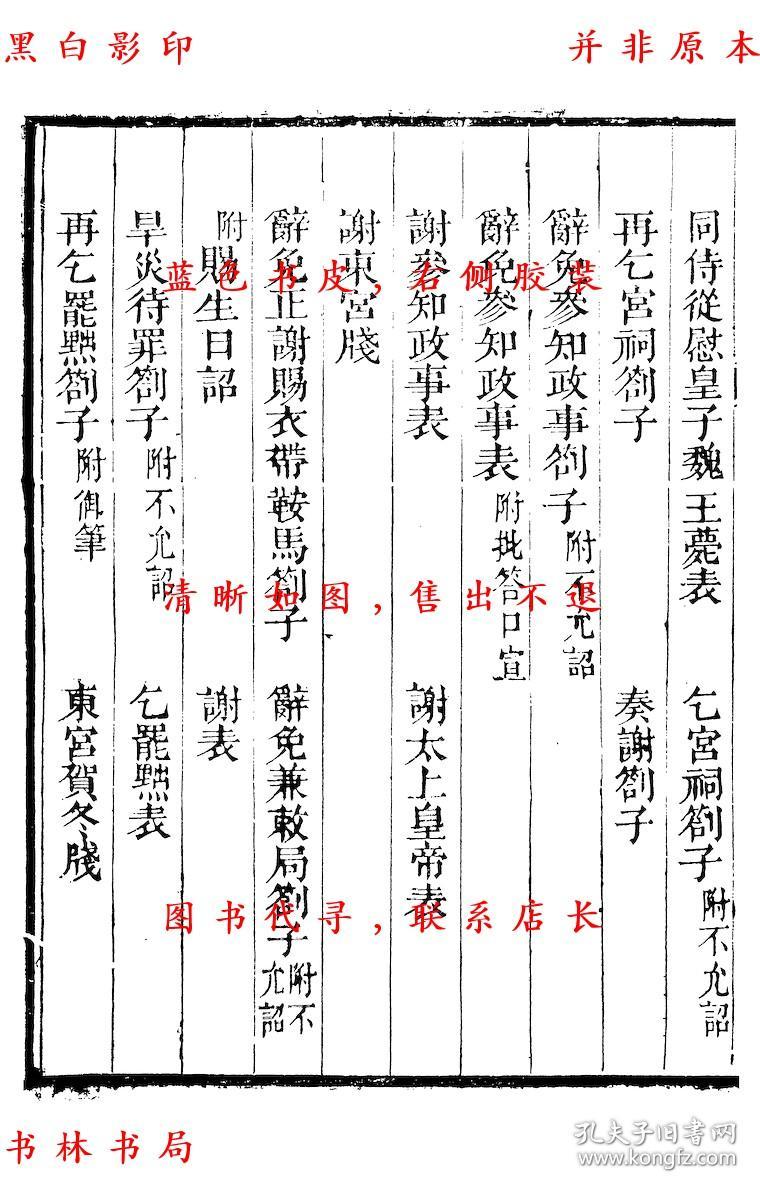 黑白影印
并非原本
同侍從慰皇子魏王薨表 乞宮祠劄子附不允詔
再乞宮祠劄子 奏謝劄子
辭免參知政事劄子附不允詔
辭免參知政事表附批答口宣
謝參知政事表 謝太上皇帝表
謝東宮牋
辭免正謝賜衣帶鞍馬劄子 辭免兼敕局劄子附不允詔
附賜生日詔 謝表
旱災待罪劄子附不允詔 乞罷黜表
再乞罷黜劄子附御筆 東宮賀冬牋
蓝色书皮,右侧胶装
清晰如图,售出不退
图书代寻,联系店长
书林书局
孔夫子旧书网
www.kongfz.com